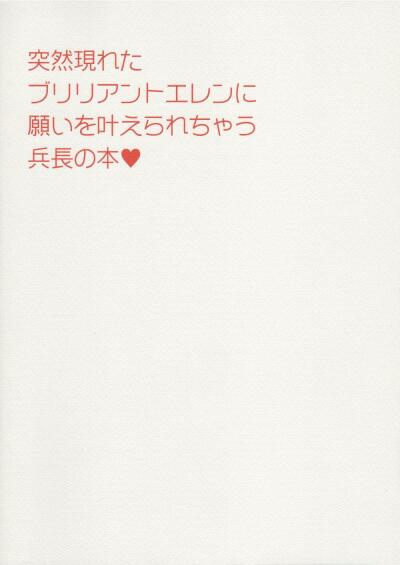 突然現れた
ブリリアントエレンに
願いを叶えられちゃう
兵長の本♥